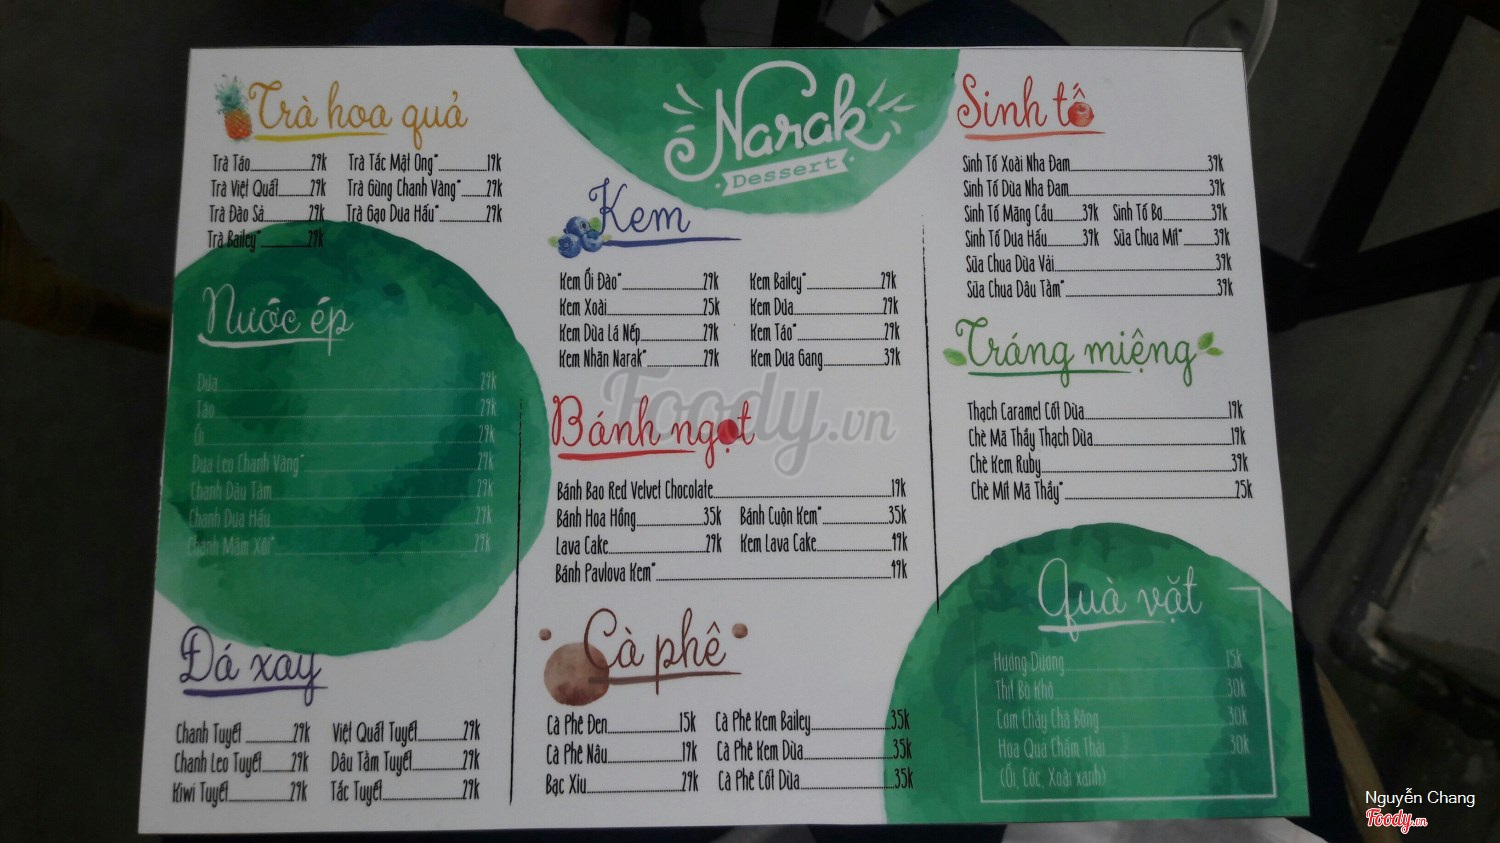 Trà hoa quả
Trà Táo 29k Trà Tắc Mật Ong* 19k
Trà Việt Quất 29k Trà Gừng Chanh Vàng* 29k
Trà Đào Sả 29k Trà Gạo Dưa Hấu* 29k
Trà Bailey* 29k
Nước ép
Dứa 29k
Táo 29k
Ổi 29k
Dưa Leo Chanh Vàng* 29k
Chanh Dâu Tằm 29k
Chanh Dưa Hấu 29k
Chanh Mâm Xôi* 29k
Đá xay
Chanh Tuyết 29k Việt Quất Tuyết 29k
Chanh Leo Tuyết 29k Dâu Tằm Tuyết 29k
Kiwi Tuyết 29k Tắc Tuyết 29k
Narak
Dessert
Kem
Kem Ổi Đào* 29k Kem Bailey* 29k
Kem Xoài 25k Kem Dứa 29k
Kem Dừa Lá Nếp 29k Kem Táo* 29k
Kem Nhãn Narak* 29k Kem Dưa Gang 39k
Bánh ngọt
Bánh Bao Red Velvet Chocolate 19k
Bánh Hoa Hồng 35k Bánh Cuộn Kem* 35k
Lava Cake 29k Kem Lava Cake 49k
Bánh Pavlova Kem* 49k
Cà phê
Cà Phê Đen 15k Cà Phê Kem Bailey 35k
Cà Phê Nâu 19k Cà Phê Kem Dừa 35k
Bạc Xỉu 29k Cà Phê Cốt Dừa 35k
Sinh tố
Sinh Tố Xoài Nha Đam 39k
Sinh Tố Dừa Nha Đam 39k
Sinh Tố Mãng Cầu 39k Sinh Tố Bơ 39k
Sinh Tố Dưa Hấu 39k Sữa Chua Mít* 39k
Sữa Chua Dừa Vải 39k
Sữa Chua Dâu Tằm* 39k
Tráng miệng
Thạch Caramel Cốt Dừa 19k
Chè Mã Thầy Thạch Dừa 19k
Chè Kem Ruby 39k
Chè Mít Mã Thầy* 25k
Quà vặt
Hướng Dương 15k
Thịt Bò Khô 30k
Cơm Cháy Chà Bông 30k
Hoa Quả Chấm Thái 30k
(Ổi, Cóc, Xoài xanh)
Foody.vn
Nguyễn Chang
Foody.vn